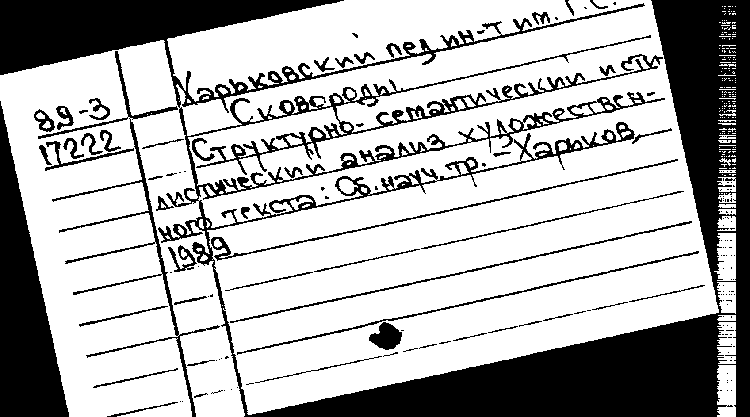 89-3
17222
Харьковский пед ин-т им. Г.С.
Сковороды.
Структурно-семантический и сти
листический анализ художествен-
ного текста: Сб. науч. тр. – Харьков,
1989